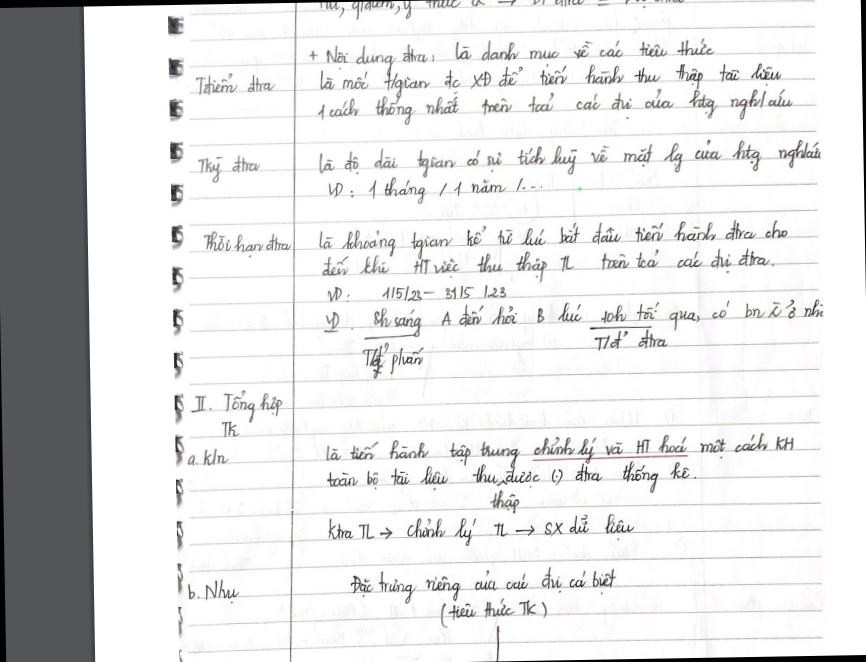 + Nội dung đtra: là danh mục về các tiêu thức
Tđiểm đtra
là mốc t/gian đc XĐ để tiến hành thu thập tài liệu
1 cách thống nhất trên toả các đvị của htg nghl cứu
Tkỳ đtra
là độ dài tgian có sự tích luỹ về mặt lg của htg nghl cứu
VD: 1 tháng / 1 năm /...
Thời hạn đtra
là khoảng tgian kể từ lúc bắt đầu tiến hành đtra cho
đến khi HT việc thu thập TL trên toả các đvị đtra.
VD: 1/5/23 – 31/5/23
VD. 8h sáng A đến hỏi B lúc 10h tối qua, có bn ở nhà
T/đ' phvấn
T/đ' đtra
II. Tổng hợp
TK
a. kln
là tiến hành tập trung chỉnh lý và HT hoá một cách KH
toàn bộ tài liệu thu thập được (.) đtra thống kê.
Ktra TL → chỉnh lý TL → SX dữ liệu
b. Nhụ
Đặc trưng riêng của các đvị cá biệt
(tiêu thức TK)